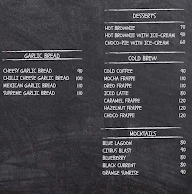 GARLIC BREAD
CHEESY GARLIC BREAD 90
CHILLI CHEESE GARLIC BREAD 100
MEXICAN GARLIC BREAD 110
SUPREME GARLIC BREAD 110
DESSERTS
HOT BROWNIE 70
HOT BROWNIE WITH ICE-CREAM 90
CHOCO-PIE WITH ICE-CREAM 60
COLD BREW
COLD COFFEE 80
MOCHA FRAPPE 110
OREO FRAPPE 110
ICED LATTE 80
CARAMEL FRAPPE 120
HAZELNUT FRAPPE 120
CHOCO FRAPPE 120
MOCKTAILS
BLUE LAGOON 80
CITRUS BLAST 90
BLUEBERRY 80
BLACK CURRENT 80
ORANGE SUNRISE 90